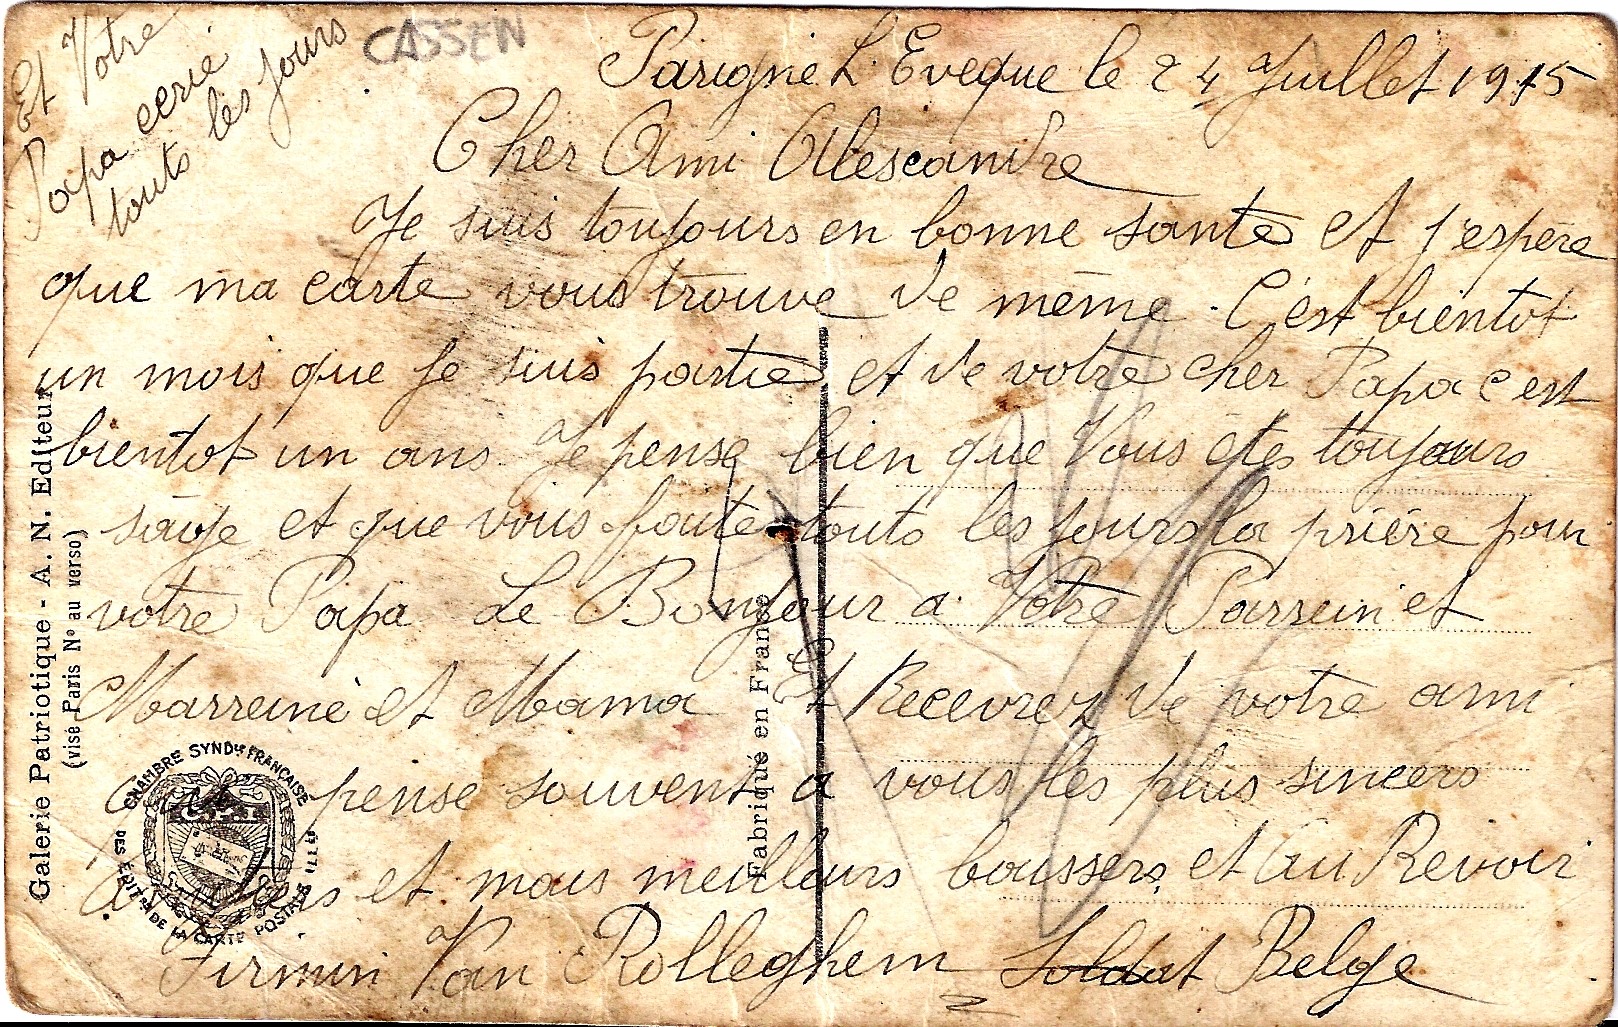 Et Votre
Papa ecrie
touts les jours
CASSEN
Parigné L'Eveque le 24 Juillet 1915
Cher Ami Alescandre
Je suis toujours en bonne sante et j'espère
que ma carte vous trouve de même. C'est bientot
un mois que je suis partie et de votre cher Papa c'est
bientot un ans. Je pense bien que Vous êtes toujours
sage et que vous faite touts les jours la prière pour
votre Papa Le Bonjour a Votre Parrein et
Marreine et Mama Et Recevrez de votre ami
pense souvent a vous les plus sincers
et mais meilleurs boussers et Au Revoir
Firmin Van Rolleghem Soldat Belge
Galerie Patriotique - A. N. Editeur
(visé Paris N° au verso)
Fabriqué en France
CHAMBRE SYNDle FRANÇAISE
DES EDITrs DE LA CARTE POSTALE ILLÉE